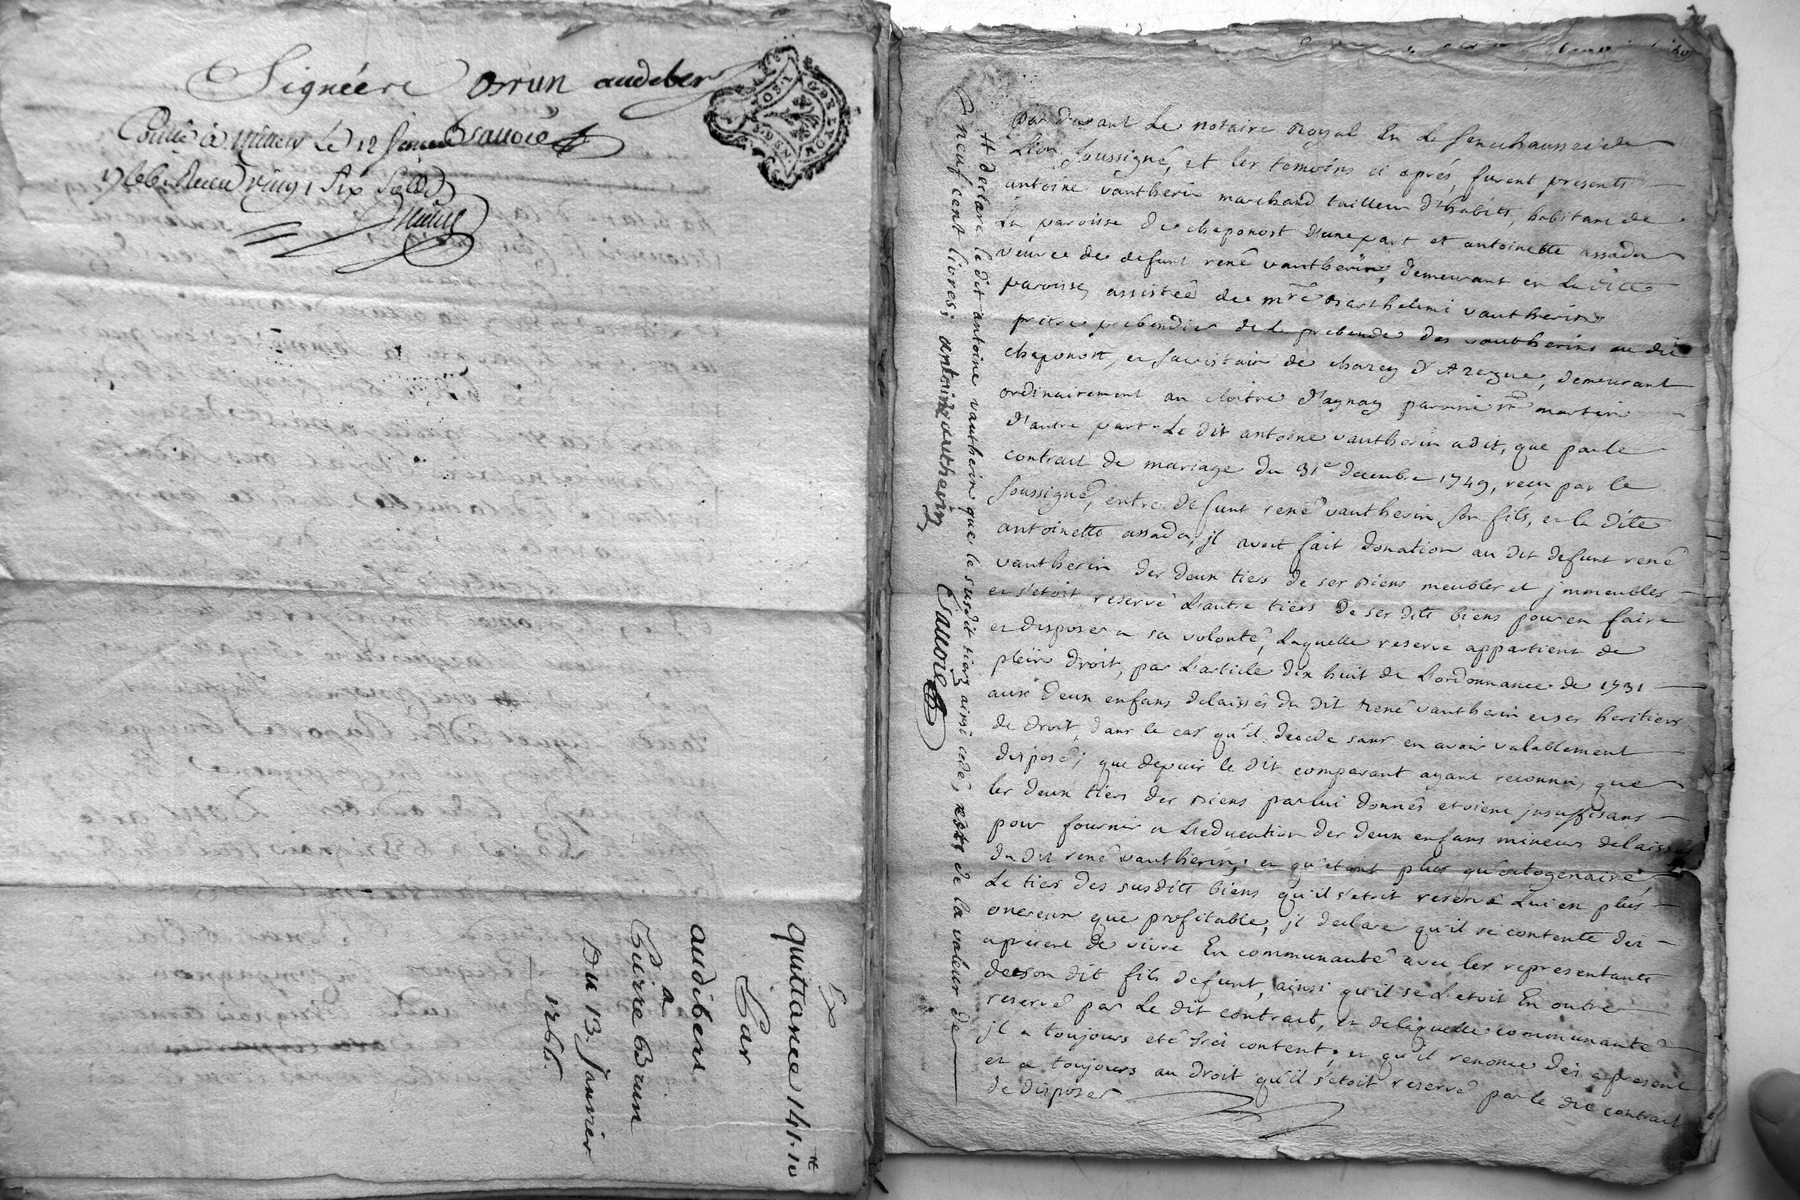 Signéere Brun audeber
Conllé à le 12
1766. Reçu vingt six sols
Esauoie
GEN LYON
Ex
quittance 141. 10
Par
audibert
a
Pierre Brun
Du 13. Janvier
1766.
Par devant Le notaire Royal En La senechaussée de
Lion soussigné, et les temoins ci après, furent presents
antoine vautherin marchand tailleur d'habits, habitant de
La paroisse de cheponost d'une part et antoinette assada
veuve de defunt rené vautherin, demeurant en La ditte
paroisse, assistée de mre Barthelemi vautherin
prêtre prebendier de La prebende des vautherins au dit
cheponost, et sacristain de charey d'Azergue, demeurant
ordinairement au cloitre d'aynay paroisse st martin
d'autre part. Le dit antoine vautherin a dit, que par le
contrat de mariage du 31e decembre 1749, reçu par le
soussigné, entre defunt rené vautherin son fils, et la dite
antoinette assada, jl avoit fait donation au dit defunt rené
vautherin des deux tiers de ses biens meubles et jmmeubles
et s'étoit reservé L'autre tiers de ses dits biens pour en faire
et disposer a sa volonté, Laquelle reserve appartient de
plein droit, par L'article dix huit de L'ordonnance de 1731
aux deux enfans delaissés du dit rené vautherin et ses heritiers
de droit, dans le cas qu'il decede sans en avoir valablement
disposé; que depuis le dit comparant ayant reconnu, que
les deux tiers des biens par lui donnés etoient jnsuffisans
pour fournir a L'education des deux enfans mineurs delaissés
du dit rené vautherin; et qu'etant plus qu'octogenaire,
Le tiers des susdits biens qu'il s'etoit reservé Lui est plus
onereux que profitable, jl declare qu'il se contente dès
apresent de vivre En communauté avec les representants
de son dit fils defunt, ainsi qu'il se L'etoit En outre
reservé par Le dit contrat, et de laquelle communauté
jl a toujours eté content; et qu'il renonce dès a present
et a toujours au droit qu'il s'etoit reservé par le dit contrat
de disposer
# declare le dit antoine vautherin que le susdit tiers ainsi cedé, est de la valeur de
neuf cent livres; antoine vautherin Esauoie